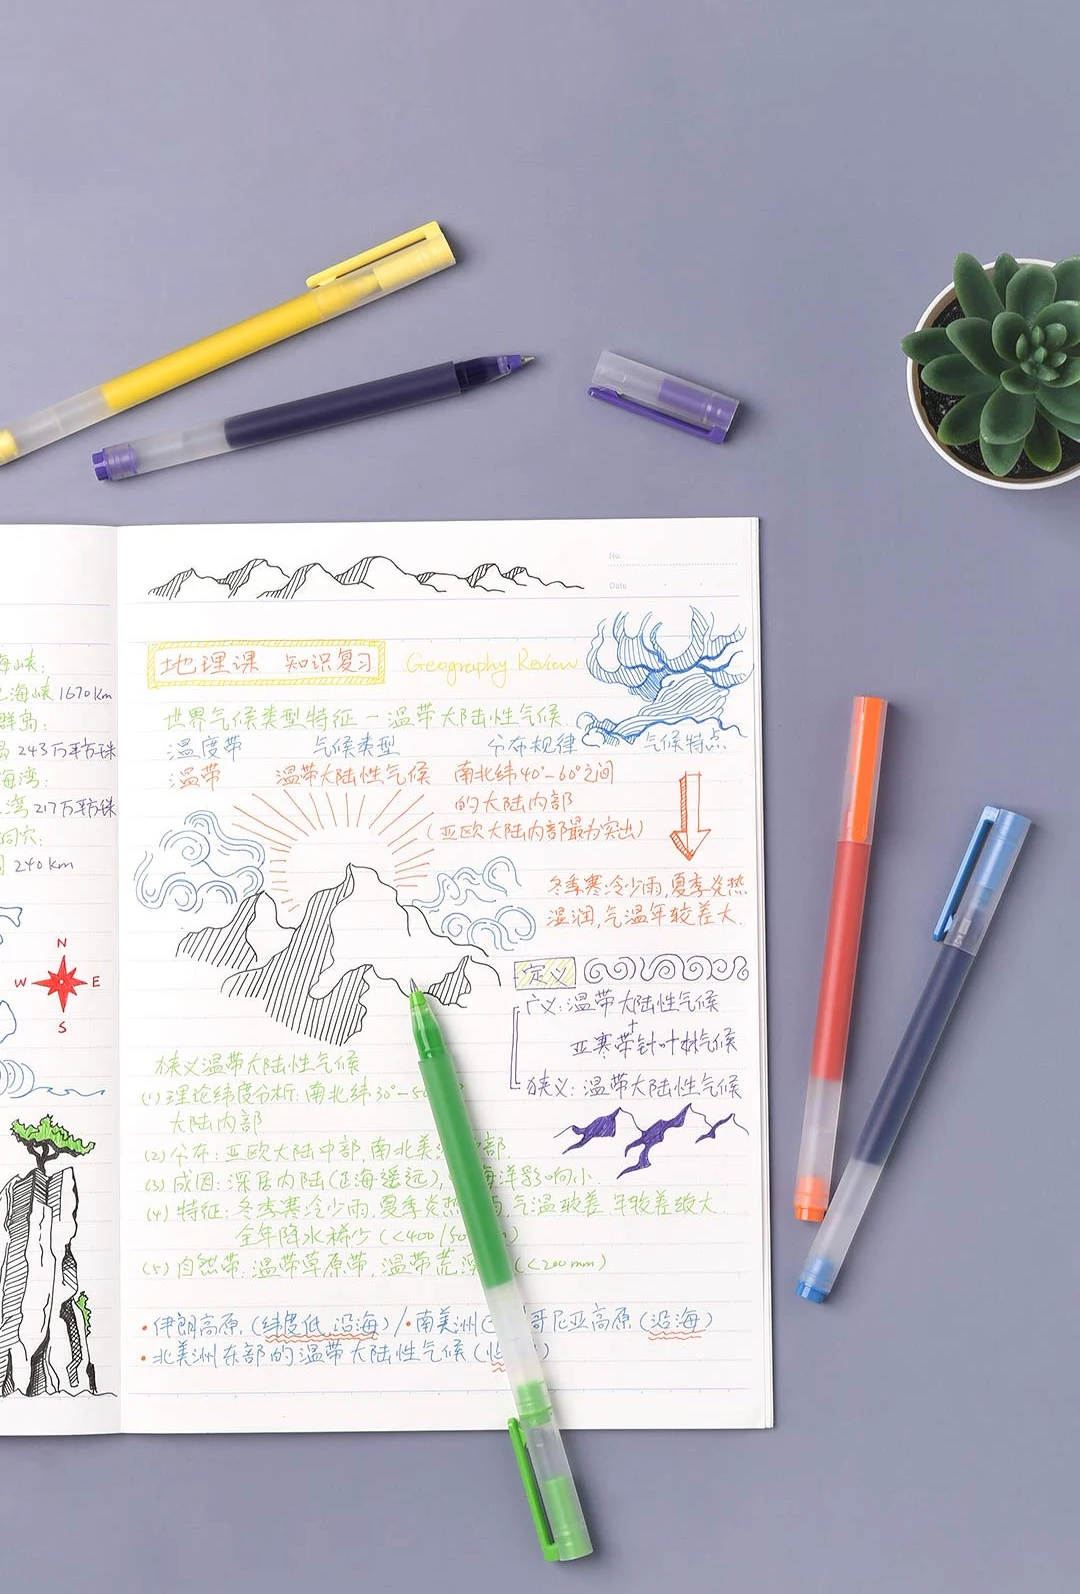 海峡:
海峡 1670km
群岛:
岛 243万平方km
海湾:
湾 217万平方km
洞穴:
240km
N
W E
S
No.
Date
地理课 知识复习 Geography Review
世界气候类型特征—温带大陆性气候
温度带 气候类型 分布规律 气候特点
温带 温带大陆性气候 南北纬40°-60°之间
的大陆内部
(亚欧大陆内部最为突出)
冬季寒冷少雨,夏季炎热
湿润,气温年较差大.
定义
广义:温带大陆性气候
+
亚寒带针叶林气候
狭义:温带大陆性气候
狭义温带大陆性气候
(1)理论纬度分析:南北纬30°-5
大陆内部
(2)分布:亚欧大陆中部,南北美 部.
(3)成因:深居内陆(距海遥远), 海洋影响小.
(4)特征:冬季寒冷少雨,夏季炎热 雨,气温 较差 年较差较大.
全年降水稀少(<400/50 )
(5)自然带:温带草原带,温带荒漠 (<200mm)
•伊朗高原,(纬度低,沿海)/•南美洲 哥尼亚高原(沿海)
•北美洲东部的温带大陆性气候( )